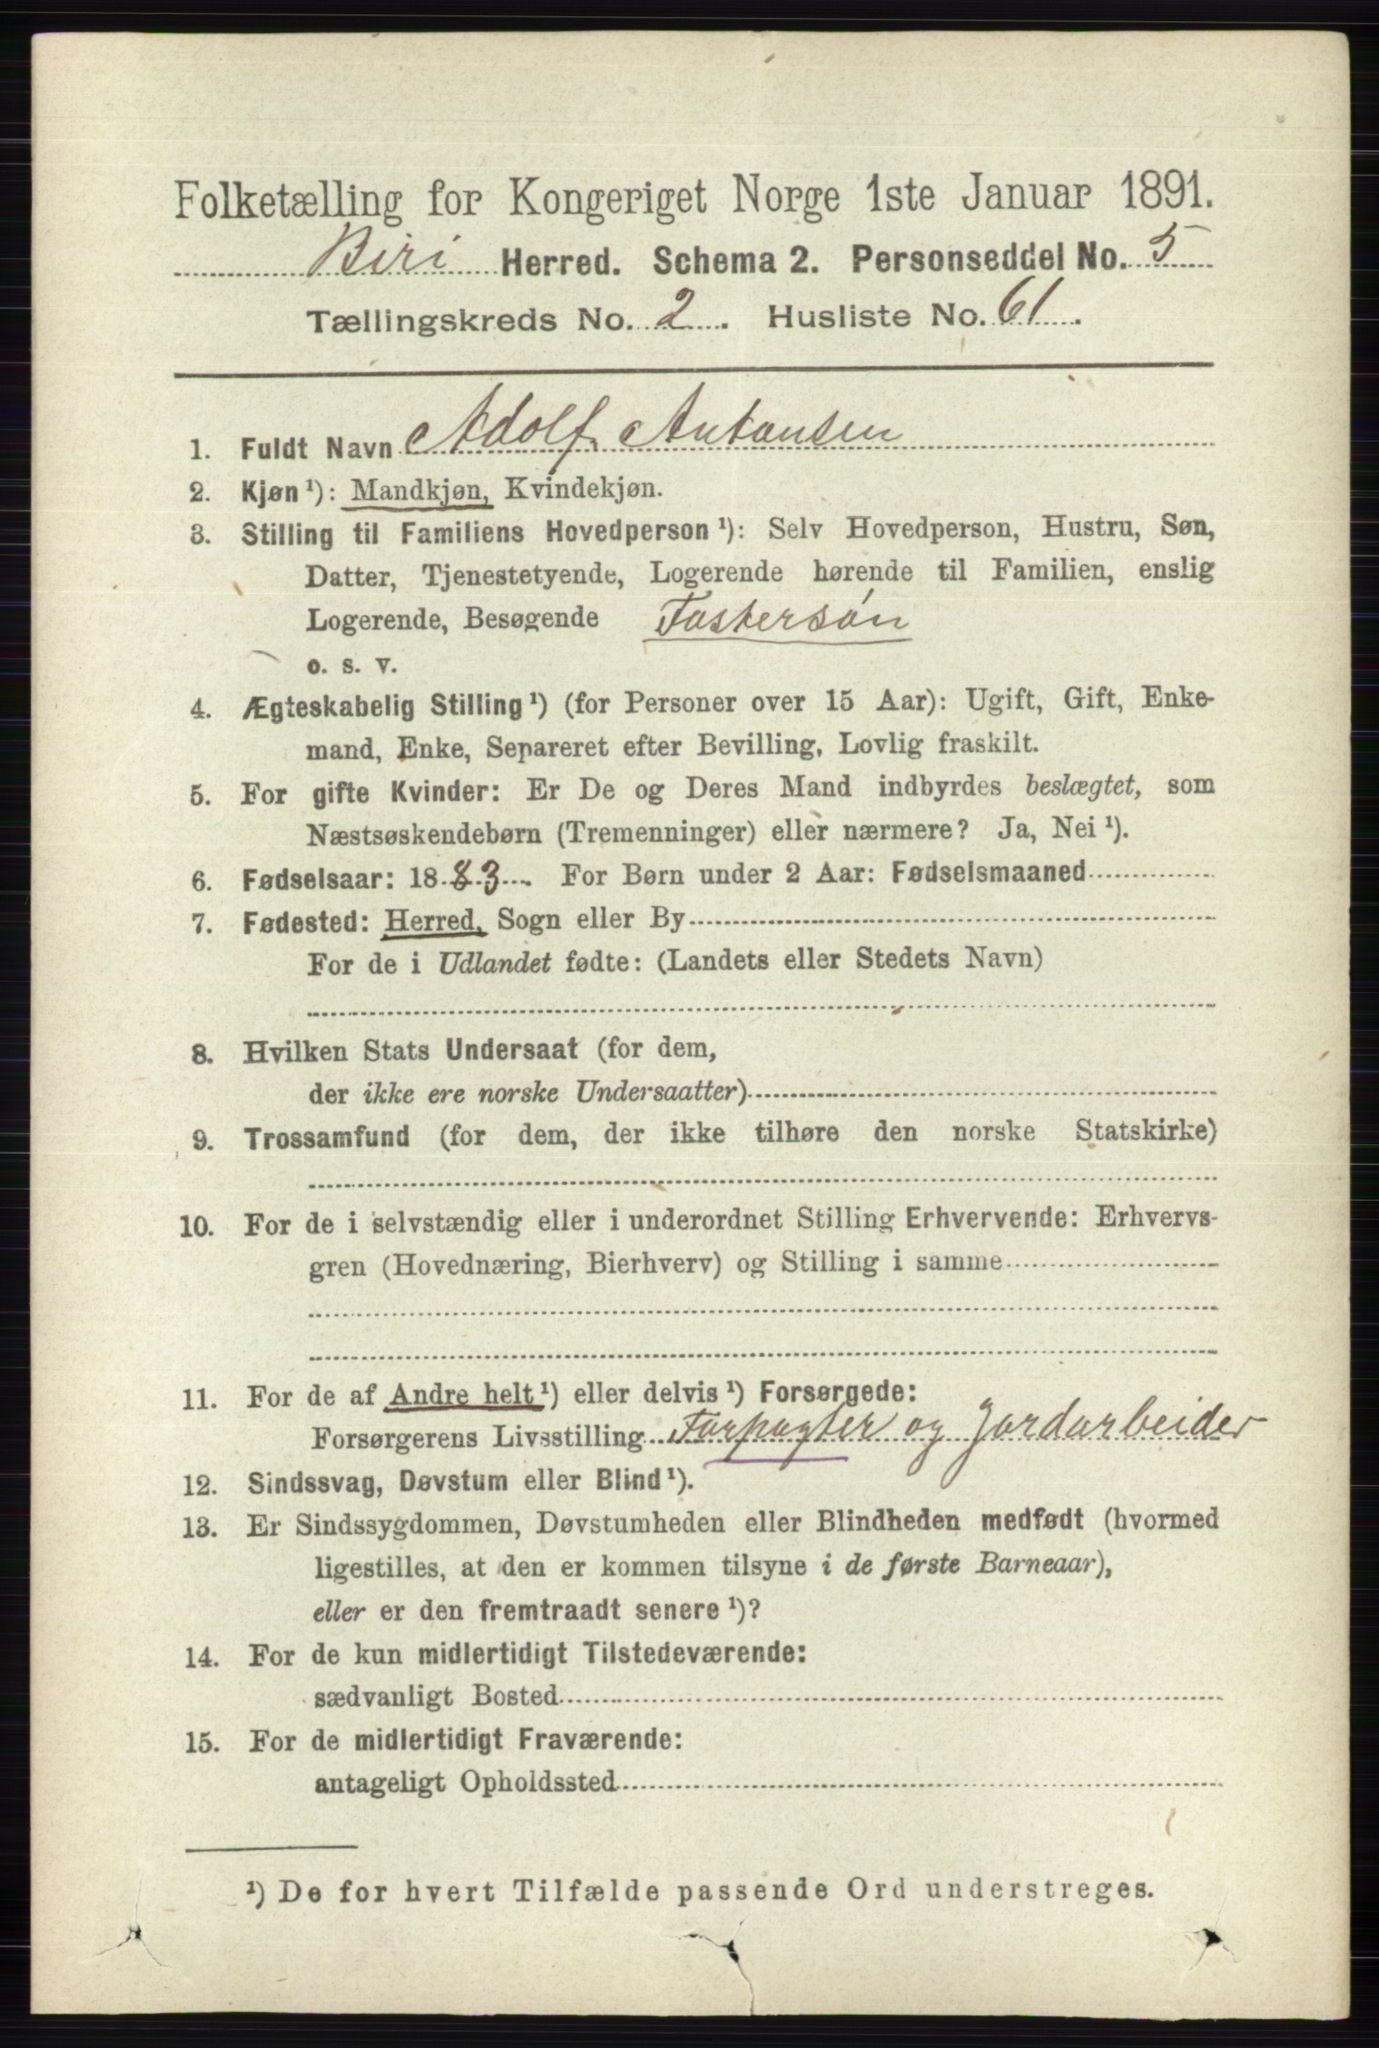 Folketælling for Kongeriget Norge 1ste Januar 1891.
Biri Herred. Schema 2. Personseddel No. 5
Tællingskreds No. 2. Husliste No. 61.
1. Fuldt Navn Adolf Antonsen
2. Kjøn ¹): Mandkjøn, Kvindekjøn.
3. Stilling til Familiens Hovedperson ¹): Selv Hovedperson, Hustru, Søn,
Datter, Tjenestetyende, Logerende hørende til Familien, enslig
Logerende, Besøgende Fostersøn
o. s. v.
4. Ægteskabelig Stilling ¹) (for Personer over 15 Aar): Ugift, Gift, Enke-
mand, Enke, Separeret efter Bevilling, Lovlig fraskilt.
5. For gifte Kvinder: Er De og Deres Mand indbyrdes beslægtet, som
Næstsøskendebørn (Tremenninger) eller nærmere? Ja, Nei ¹).
6. Fødselsaar: 1883. For Børn under 2 Aar: Fødselsmaaned
7. Fødested: Herred, Sogn eller By
For de i Udlandet fødte: (Landets eller Stedets Navn)
8. Hvilken Stats Undersaat (for dem,
der ikke ere norske Undersaatter)
9. Trossamfund (for dem, der ikke tilhøre den norske Statskirke)
10. For de i selvstændig eller i underordnet Stilling Erhvervende: Erhvervs-
gren (Hovednæring, Bierhverv) og Stilling i samme
11. For de af Andre helt ¹) eller delvis ¹) Forsørgede:
Forsørgerens Livsstilling Forpagter og Jordarbeider
12. Sindssvag, Døvstum eller Blind ¹).
13. Er Sindssygdommen, Døvstumheden eller Blindheden medfødt (hvormed
ligestilles, at den er kommen tilsyne i de første Barneaar),
eller er den fremtraadt senere ¹)?
14. For de kun midlertidigt Tilstedeværende:
sædvanligt Bosted
15. For de midlertidigt Fraværende:
antageligt Opholdssted
¹) De for hvert Tilfælde passende Ord understreges.